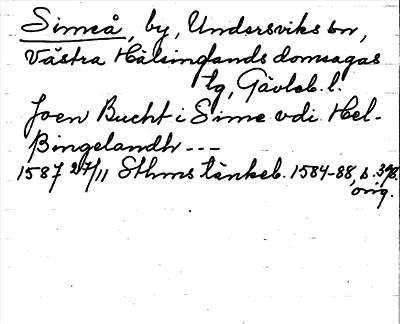 Simeå, by, Undersviks sn,
Västra Hälsinglands domsagas
tg, Gävleb. l.
Joen Bucht i Sime vdi Hel-
singelandh ---
1587 27/11 Sthms tänkeb. 1584-88, s. 398.
orig.